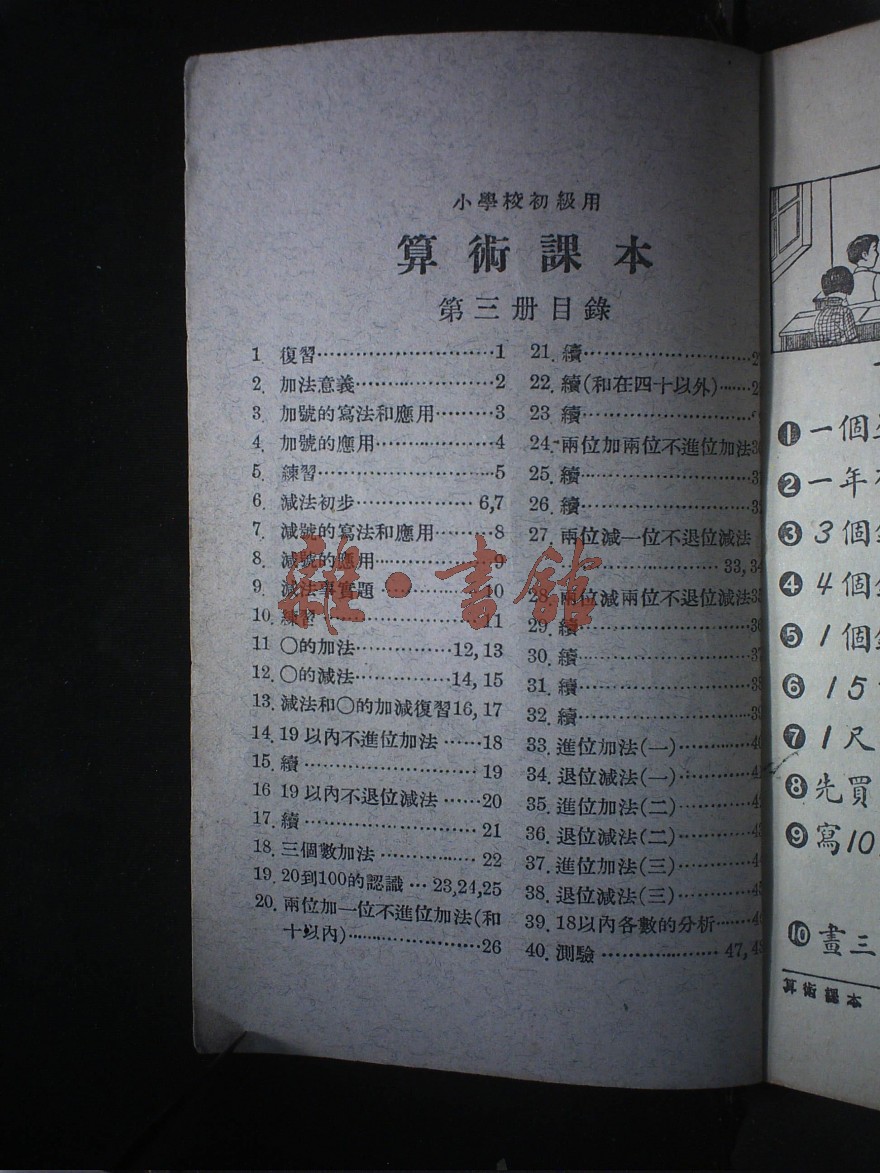 小學校初級用
算術課本
第三册目錄
1. 復習………………………1
2. 加法意義…………………2
3. 加號的寫法和應用………3
4. 加號的應用………………4
5. 練習………………………5
6. 減法初步……………… 6,7
7. 減號的寫法和應用………8
8. 減號的應用………………9
9. 減法事實題………………10
10. 練習……………………11
11 〇的加法……………12,13
12. 〇的減法……………14,15
13. 減法和〇的加減復習16,17
14. 19以內不進位加法……18
15. 續………………………19
16 19以內不退位減法……20
17. 續………………………21
18. 三個數加法……………22
19. 20到100的認識…23,24,25
20. 兩位加一位不進位加法(和
十以內)…………………26
21. 續………………………
22. 續(和在四十以外)……
23. 續………………………
24. 兩位加兩位不進位加法
25. 續………………………
26. 續………………………
27. 兩位減一位不退位減法
……………………33,34
28. 兩位減兩位不退位減法
29. 續………………………
30. 續………………………
31. 續………………………
32. 續………………………
33. 進位加法(一)…………
34. 退位減法(一)…………
35. 進位加法(二)…………
36. 退位減法(二)…………
37. 進位加法(三)…………
38. 退位減法(三)…………
39. 18以內各數的分析……
40. 測驗………………47,
雜·書館
❶一個
❷一年
❸3個
❹4個
❺1個
❻15
❼1尺
❽先買
❾寫10
❿畫三
算術課本